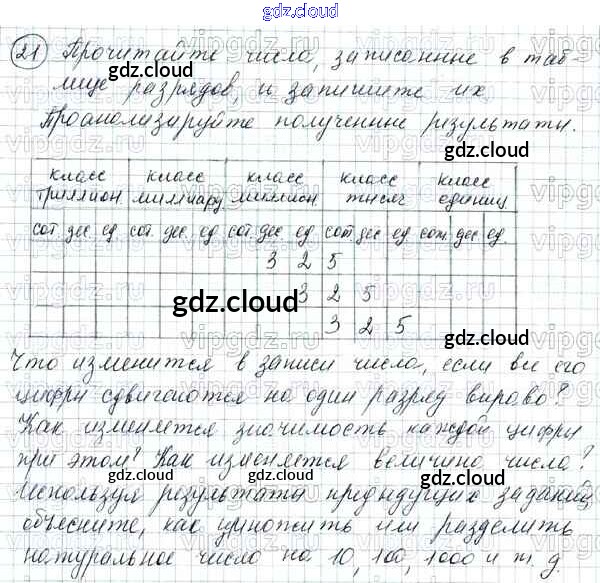 gdz.cloud
21 Прочитайте числа, записанные в таб-
лице разрядов, и запишите их.
Проанализируйте полученные результаты.
класс триллион класс миллиард класс миллион класс тысяч класс единиц
сот дес ед сот дес ед сот дес ед сот дес ед сот дес ед
3 2 5
3 2 5
3 2 5
Что изменится в записи числа, если все его
цифры сдвигаются на один разряд вправо?
Как изменяется значимость каждой цифры
при этом? Как изменяется величина числа?
Используя результаты предыдущих заданий,
объясните, как умножить или разделить
натуральное число на 10, 100, 1000 и т. д.
gdz.cloud
gdz.cloud
gdz.cloud
gdz.cloud
gdz.cloud
gdz.cloud